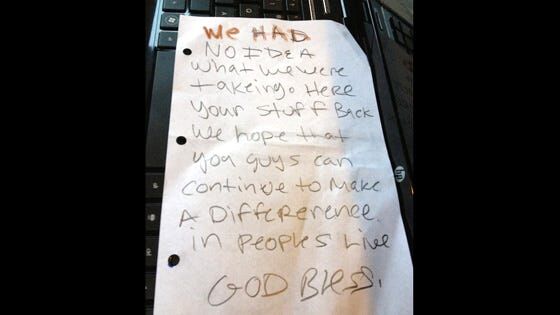 We HAD
NO IDEA
what we were
takeing. Here
Your stuff Back
we hope that
you guys can
continue to Make
A Difference
in peoples Live
GOD Bless.
hp